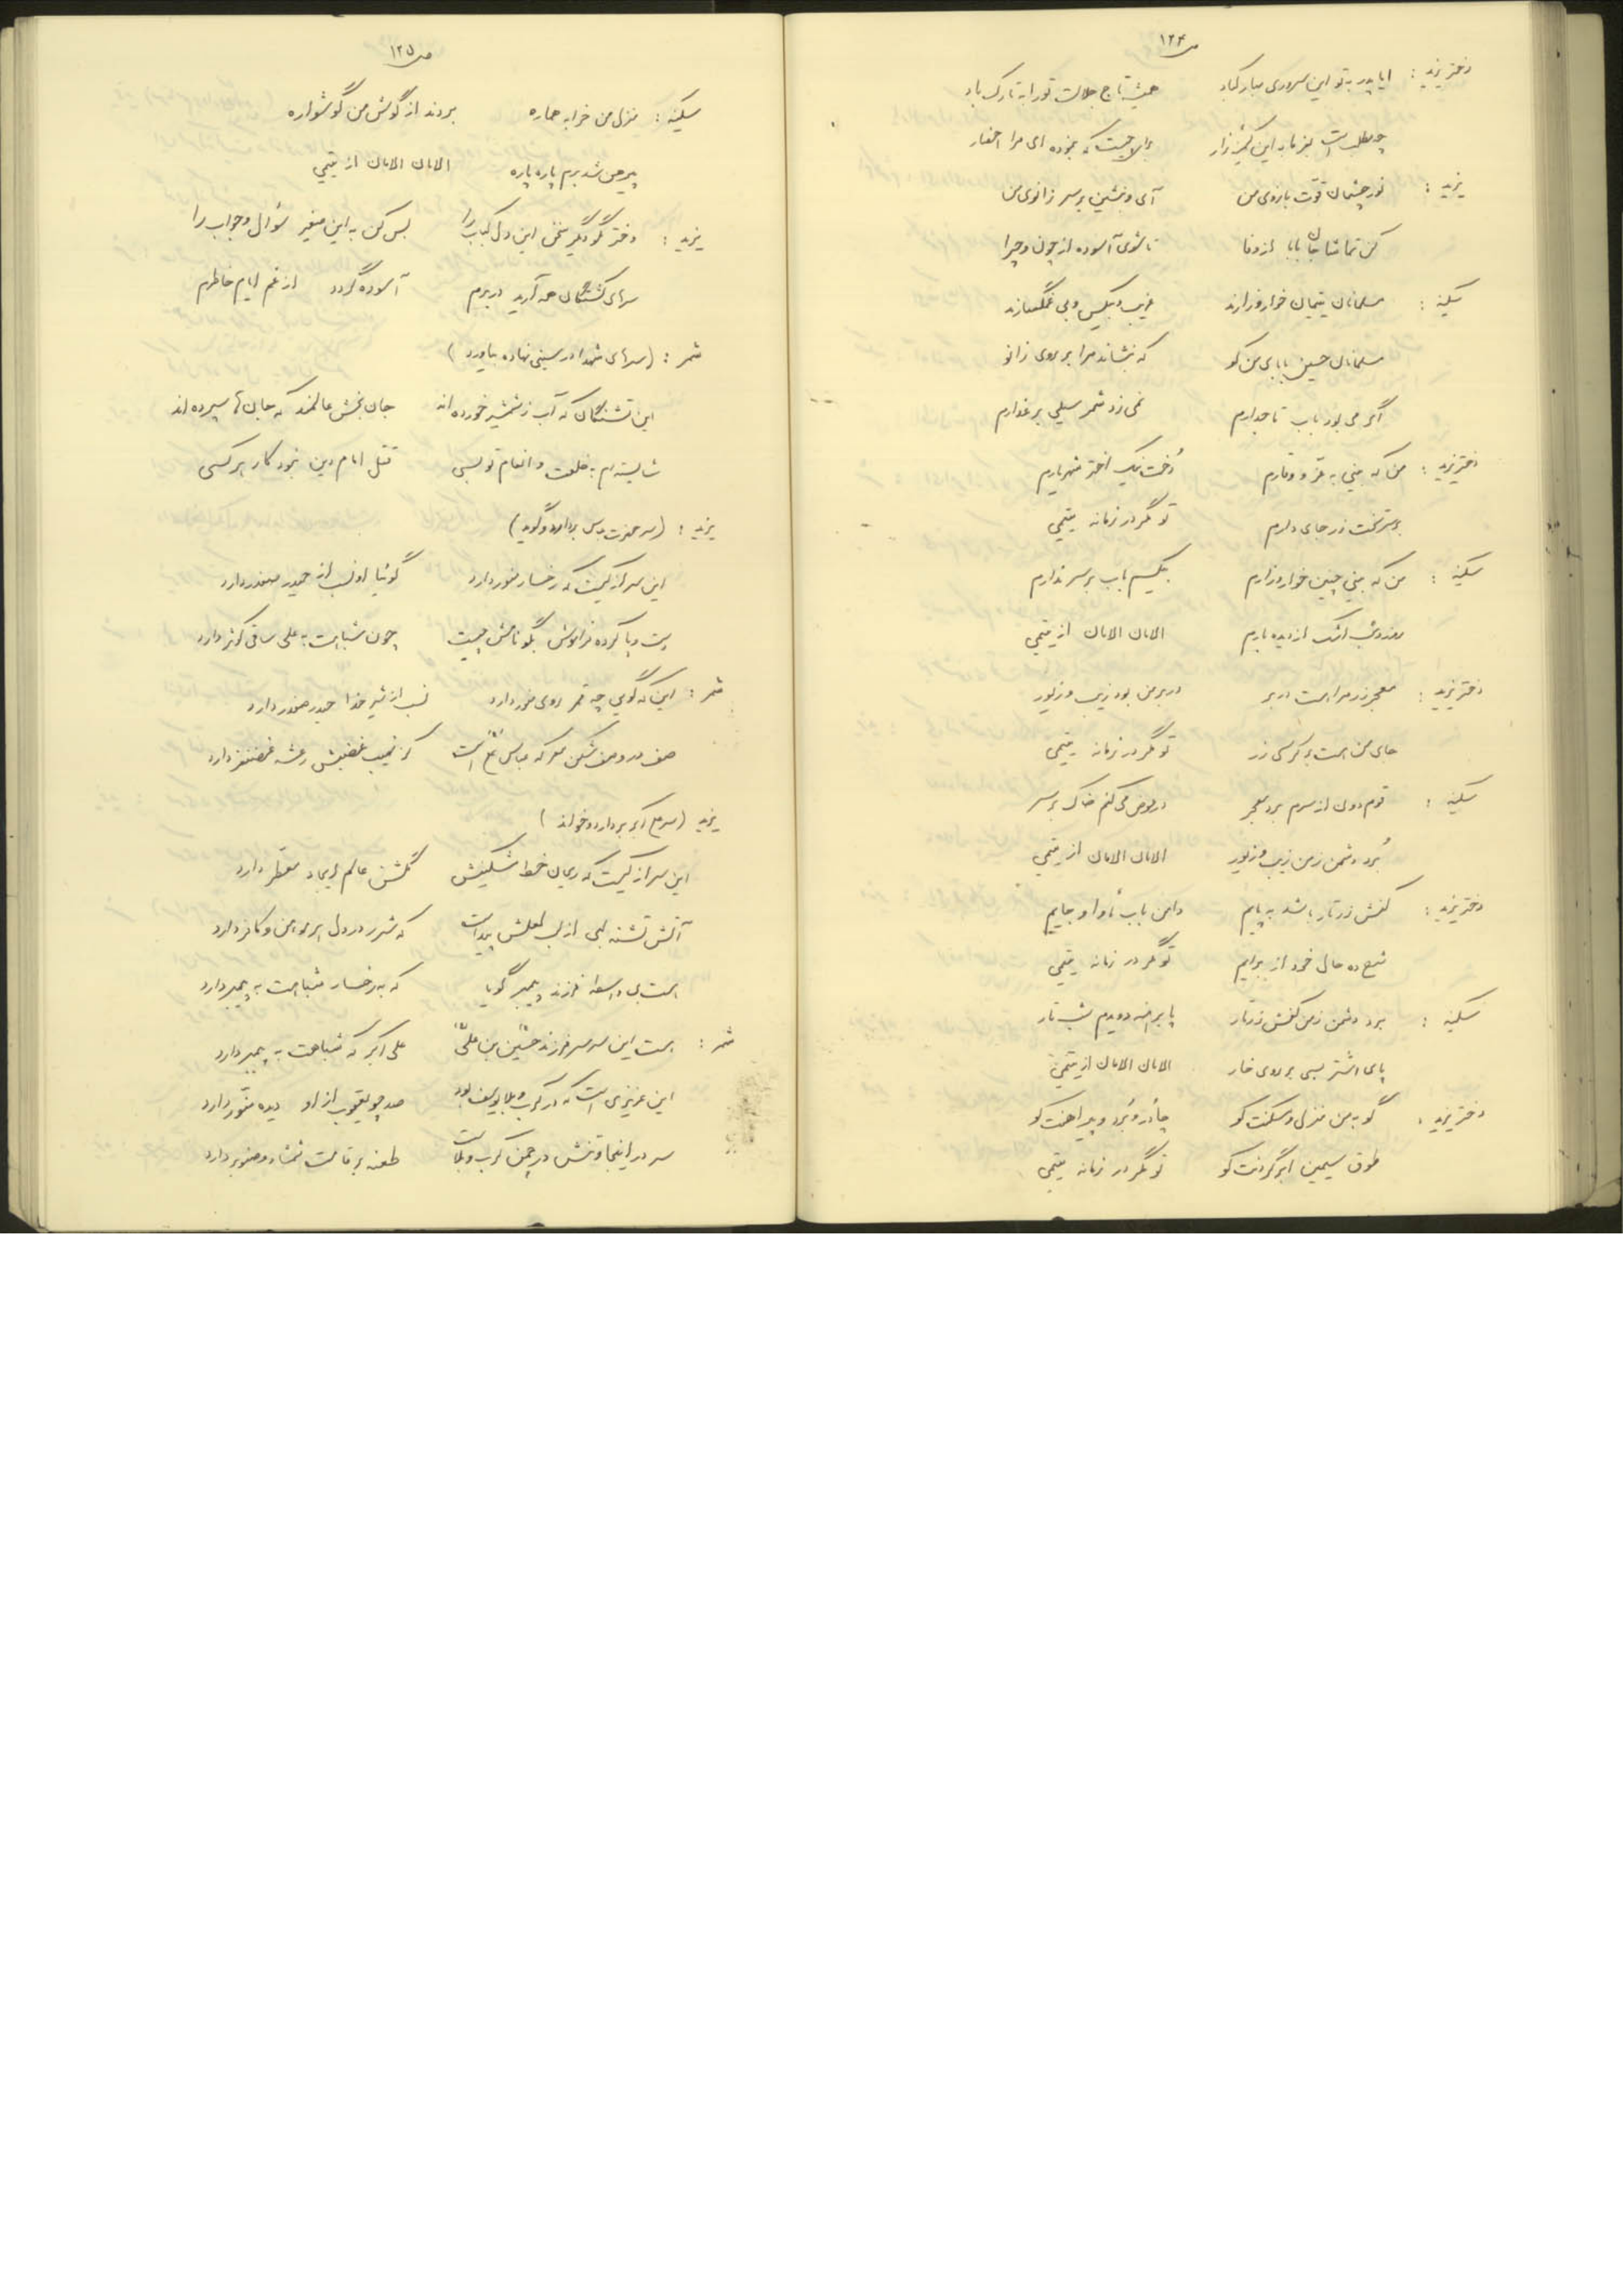 ص ۱۲۴
دختر یزید : ایا پدر به تو این سروری مبارکباد همیشه تاج جلالت تو را به تارک باد
چه مطلب است بفرما به این کنیز زار برای چیست که نموده ای مرا احضار
یزید : نور چشمان قوّت بازوی من آی و بنشین بر سر زانوی من
کن تماشا جان بابا از وفا تا شوی آسوده از چون و چرا
سکینه : مسلمانان یتیمان خوار و زارند غریب و بیکس و بی غمگسارند
مسلمانان حسین بابای من کو که بنشاند مرا بر روی زانو
اگر می بود باب تاجدارم نمی زد شمر سیلی بر عذارم
دختر یزید : من که بینی به عزّ و وقارم دُخت نیک اختر شهریارم
بر سر تخت زر جای دارم تو مگر در زمانه یتیمی
سکینه : من که بینی چنین خوار و زارم بیکسم باب بر سر ندارم
روز و شب اشک از دیده بارم الامان الامان از یتیمی
دختر یزید : معجر زر مرا هست در بر در بر من بود زیب و زیور
جای من است بر کرسی زر تو مگر در زمانه یتیمی
سکینه : قوم دون از سرم برد معجر در عوض می کنم خاک بر سر
بُرد دشمن ز من زیب و زیور الامان الامان از یتیمی
دختر یزید : کفش زرتار باشد به پایم دامن باب مأوا و جایم
شرح ده حال خود از برایم تو مگر در زمانه یتیمی
سکینه : برد دشمن ز من کفش زرتار پا برهنه دویدم شب تار
پای اشتر بسی بر روی خار الامان الامان از یتیمی
دختر یزید : گو به من منزل و مسکنت کو چادر و بُرد و پیراهنت کو
طوق سیمین بر گردنت کو تو مگر در زمانه یتیمی
ص ۱۲۵
سکینه : منزل من خرابه هماره بردند از گوش من گوشواره
پیرهن شد برم پاره پاره الامان الامان از یتیمی
یزید : دختر مگو دگر سخن این دل کباب را بس کن به این صغیر سؤال و جواب را
سرهای کشتگان همه آرید در برم آسوده گردد از غم ایام خاطرم
شمر : (سرهای شهدا در سینی نهاده بیاورد)
این تشنگان که آب ز شمشیر خورده اند جان بخش عالمند که جان ها سپرده اند
شایسته ام به خلعت و انعام تو بسی قتل امام دین نبود کار هر کسی
یزید : (سر حضرت عباس بردارد و گوید)
این سر از کیست که رخسار منور دارد گوئیا او نسب از حیدر صفدر دارد
دست و پا کرده فراموش بگو نامش چیست چون شباهت به علی ساقی کوثر دارد
شمر : این که گویی چه قمر روی منور دارد نسب از شیر خدا حیدر صفدر دارد
صف در و صف شکن معرکه عباس علی است کز نهیب غضبش رعشه غضنفر دارد
یزید (سر علی اکبر بردارد و خواند)
این سر از کیست که ریحان خط مشکینش گلشن عالم ایجاد معطر دارد
آتش تشنه لبی از لب لعلش پیداست که شرر در دل هر مومن و کافر دارد
هست بی واسطه فرزند پیمبر گویا که به رخسار شباهت به پیمبر دارد
شمر : هست این سر سر فرزند حسین بن علی علی اکبر که شباهت به پیمبر دارد
این عزیزی است که در کرب و بلا یوسف بود صد چو یعقوب از او دیده منوّر دارد
سر در اینجا و تنش در چمن کرب و بلاست طعنه بر قامت شمشاد و صنوبر دارد